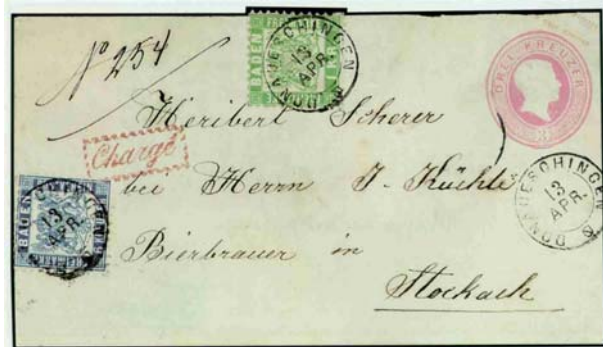 No 254
BADEN
FREI
DONAUESCHINGEN
13
APR
DREI KREUZER
3
Chargé
Heribert Scherer
bei Herrn J. Küchle
DONAUESCHINGEN
13
APR
BADEN
13
APR
Bierbrauer in
Stockach